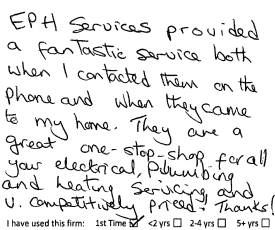 EPH Services provided
a fantastic service both
when I contacted them on the
phone and when they came
to my home. They are a
great one-stop-shop for all
your electrical, Plumbing
and heating Servicing and
v. competitively priced! Thanks!
I have used this firm: 1st Time ☑ <2 yrs ☐ 2-4 yrs ☐ 5+ yrs ☐